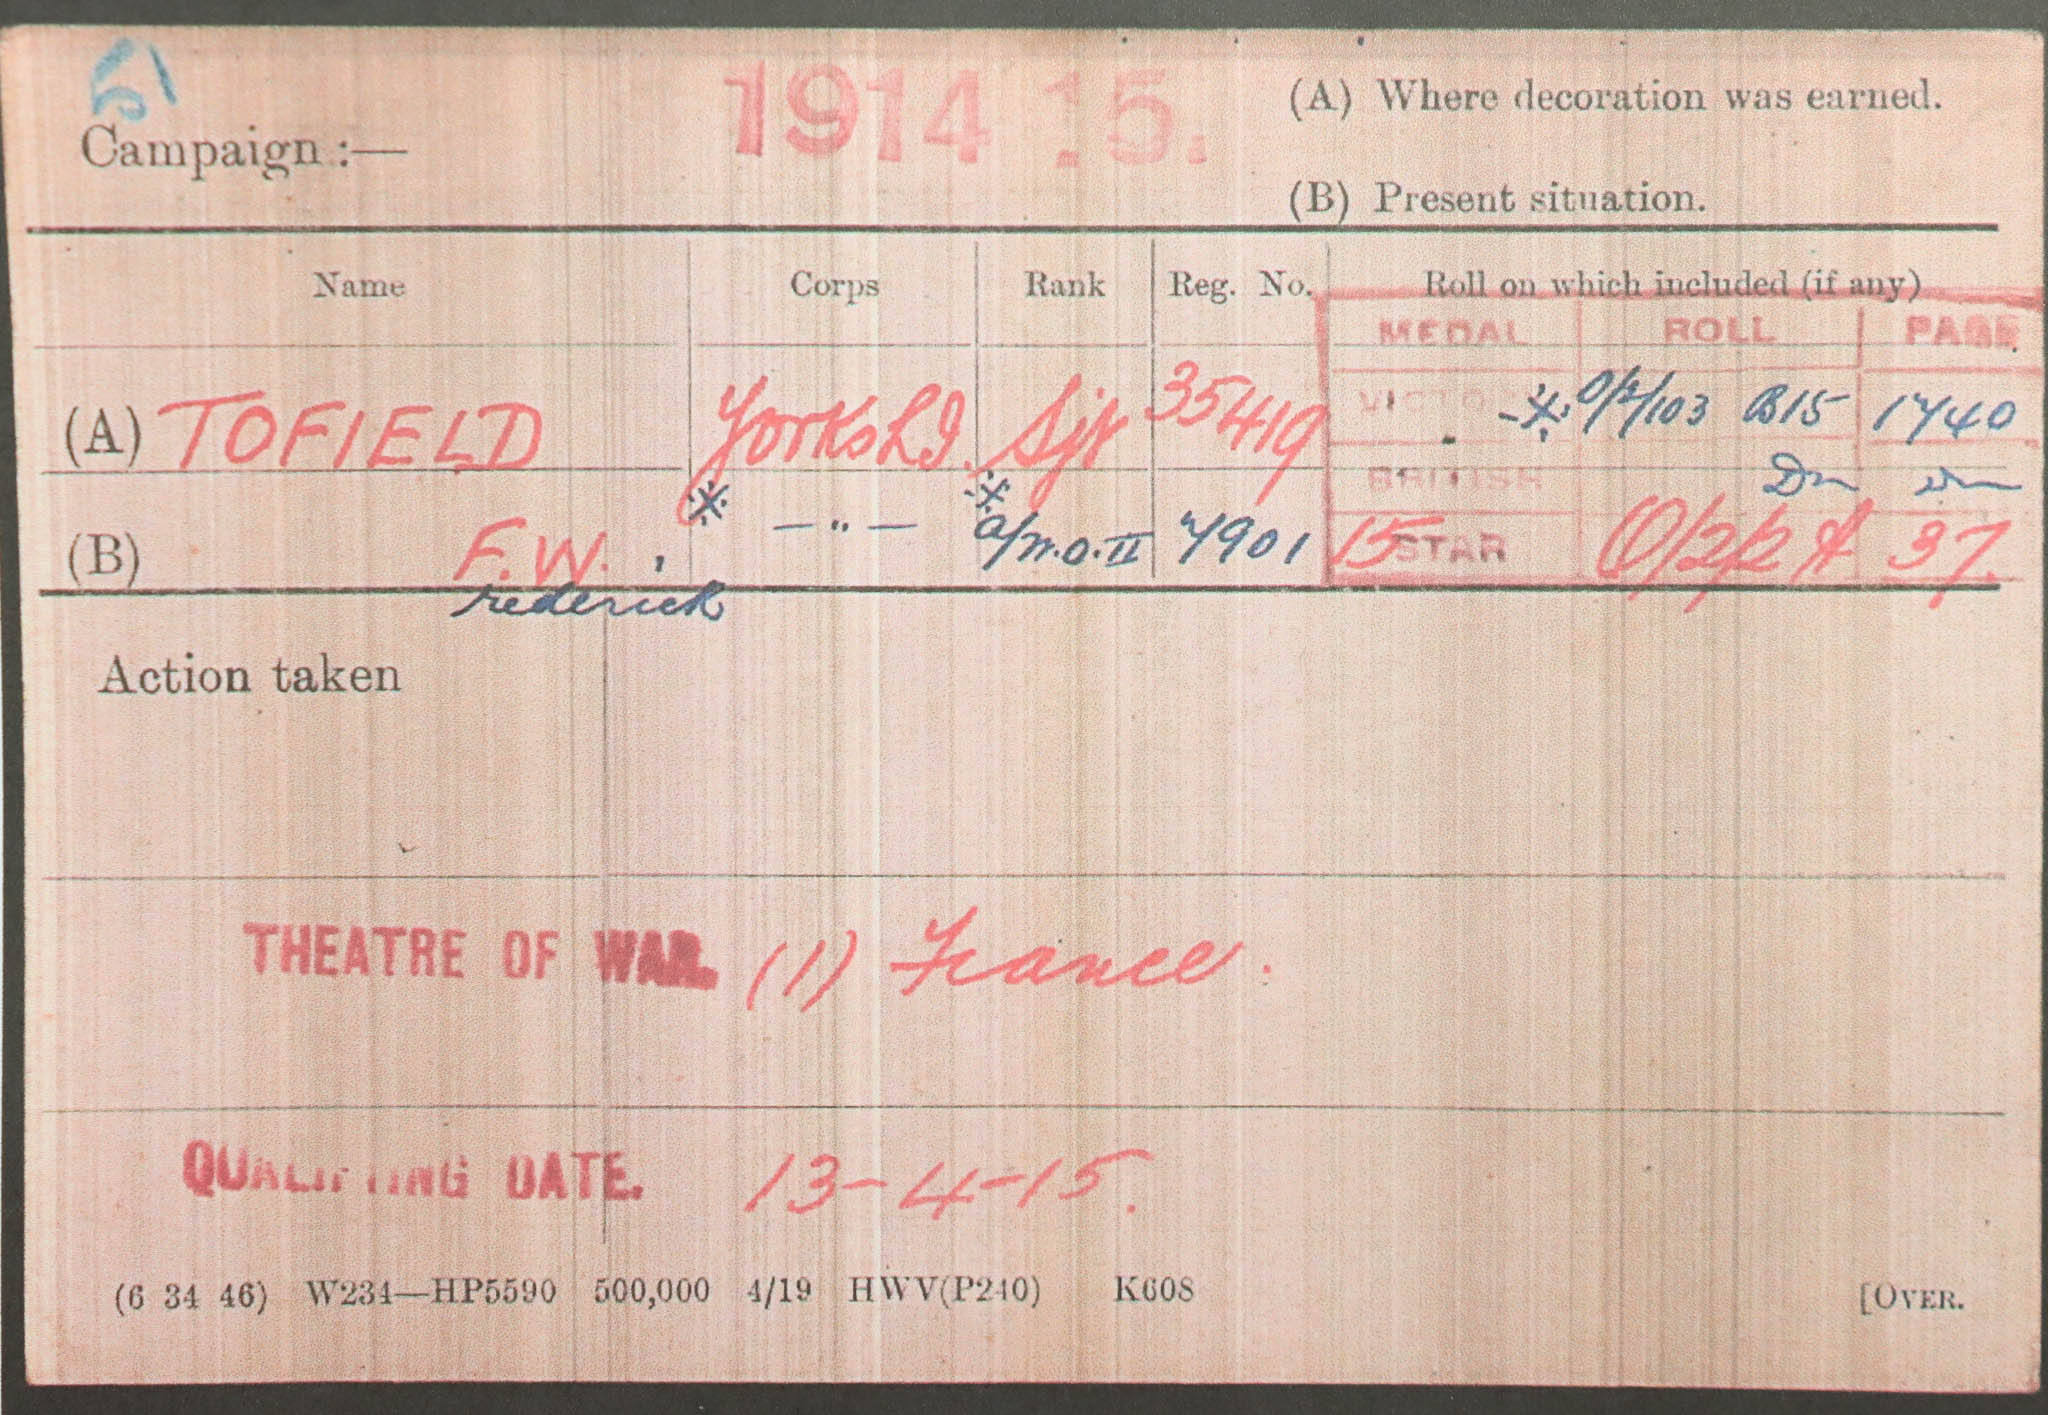 51
Campaign :— 1914 15.
(A) Where decoration was earned.
(B) Present situation.
Name Corps Rank Reg. No. Roll on which included (if any)
MEDAL ROLL PAGE
(A) TOFIELD Yorks L.I. Sjt 35419 VICTORY ※ O/2/103 B15 1740
BRITISH Do Do
(B) F.W. ※ — " — ※ a/W.O.II 7901 15 STAR O/2/2 A 37.
rederick
Action taken
THEATRE OF WAR. (1) France.
QUALIFYING DATE. 13-4-15.
(6 34 46) W234—HP5590 500,000 4/19 HWV(P240) K608 [OVER.